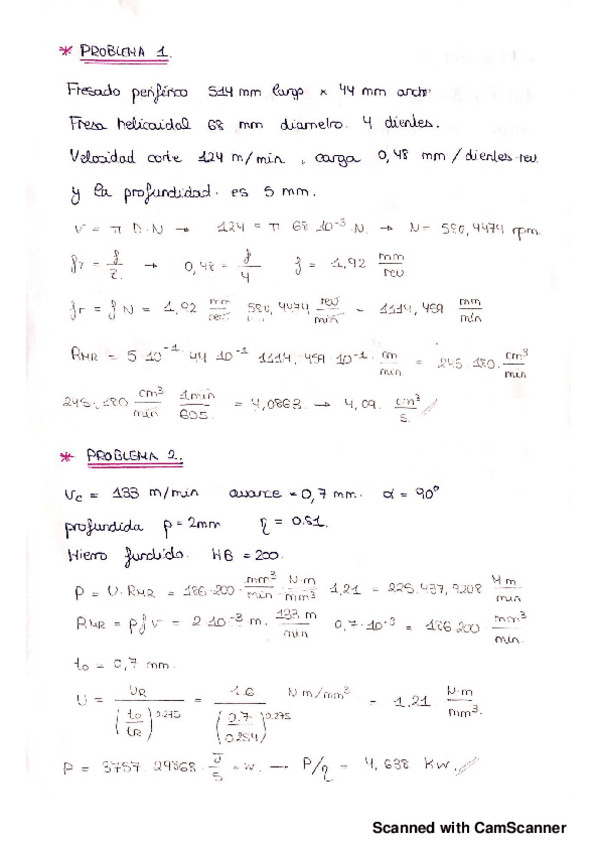 * PROBLEMA 1.
Fresado periférico 514 mm largo × 44 mm ancho
Fresa helicoidal 68 mm diametro. 4 dientes.
Velocidad corte 124 m/min, carga 0,48 mm/dientes·rev
y la profundidad es 5 mm.
V = π D·N → 124 = π 68·10⁻³·N → N = 580,4474 rpm.
fz = f/z → 0,48 = f/4 f = 1,92 mm/rev
fr = f N = 1,92 mm/rev 580,4474 rev/min = 1114,459 mm/min
RMR = 5·10⁻¹·44·10⁻¹ 1114,459·10⁻¹· cm/min = 245.180· cm³/min
245.180 cm³/min 1min/60s = 4,0863 → 4,09 cm³/s
* PROBLEMA 2.
Vc = 133 m/min avance = 0,7 mm. α = 90º
profundida p = 2mm η = 0.81.
Hierro fundido. HB = 200.
P = U·RMR = 186·200· mm³/min N·m/mm³ 1,21 = 225.437,9208 N m/min
RMR = p f v = 2·10⁻³ m. 133 m/min 0,7·10⁻³ = 186 200 mm³/min.
to = 0,7 mm.
U = UR/(to/tR)^0.275 = 1.6/(0.7/0.254)^0.275 N m/mm² = 1,21 N·m/mm³.
P = 3757.29868· J/s = W. → P/η = 4,638 KW.
Scanned with CamScanner